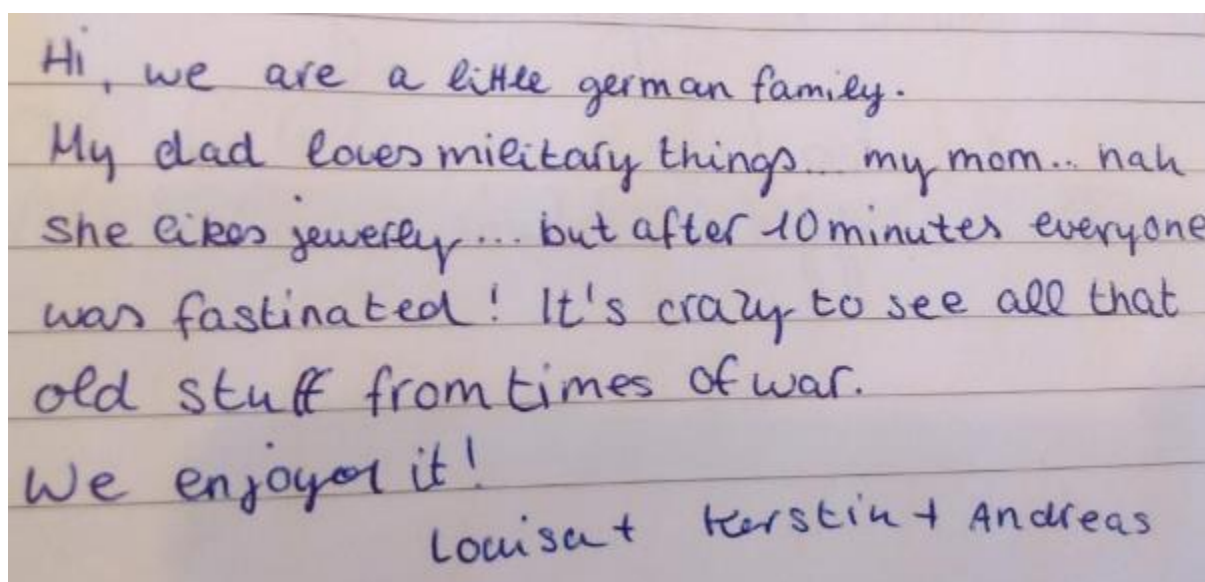 Hi, we are a little german family.
My dad loves military things... my mom... nah
she likes jewerly... but after 10 minutes everyone
was fastinated! It's crazy to see all that
old stuff from times of war.
We enjoyed it!
Louisa + Kerstin + Andreas